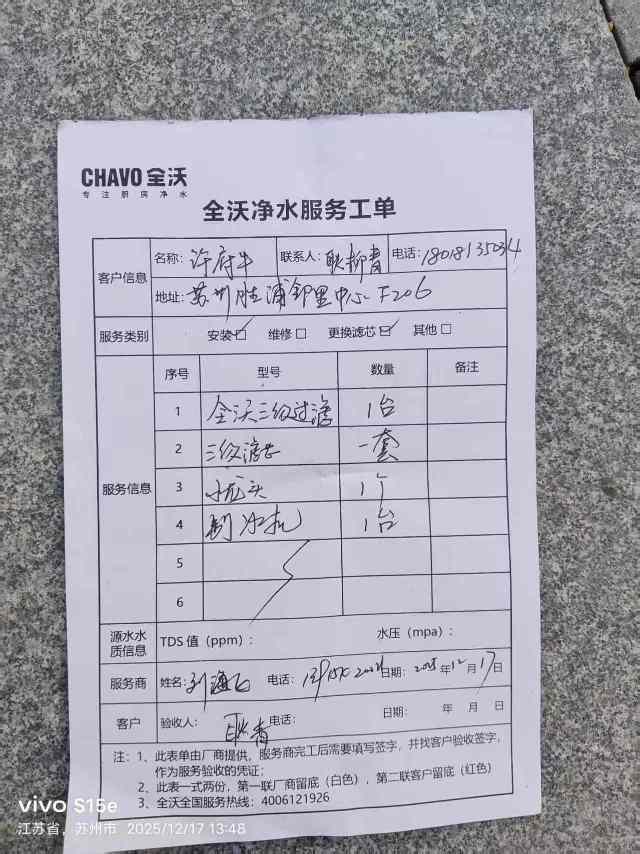 CHAVO 全沃
专注厨房净水
全沃净水服务工单
客户信息
名称: 许府牛 联系人: 电话: 18018135034
地址: 苏州胜浦邻里中心 F206
服务类别 安装 维修 更换滤芯 其他
服务信息
序号 型号 数量 备注
1 全沃三级过滤 1台
2 三级滤芯 一套
3 水龙头 1个
4 制冰机 1台
5
6
源水水质信息 TDS 值 (ppm): 水压 (mpa):
服务商 姓名: 电话: 日期: 2025年12月17日
客户 验收人: 电话: 日期: 年 月 日
注: 1、此表单由厂商提供, 服务商完工后需要填写签字, 并找客户验收签字,
作为服务验收的凭证;
2、此表一式两份, 第一联厂商留底 (白色), 第二联客户留底 (红色)
3、全沃全国服务热线: 4006121926
vivo S15e
江苏省, 苏州市 2025/12/17 13:48